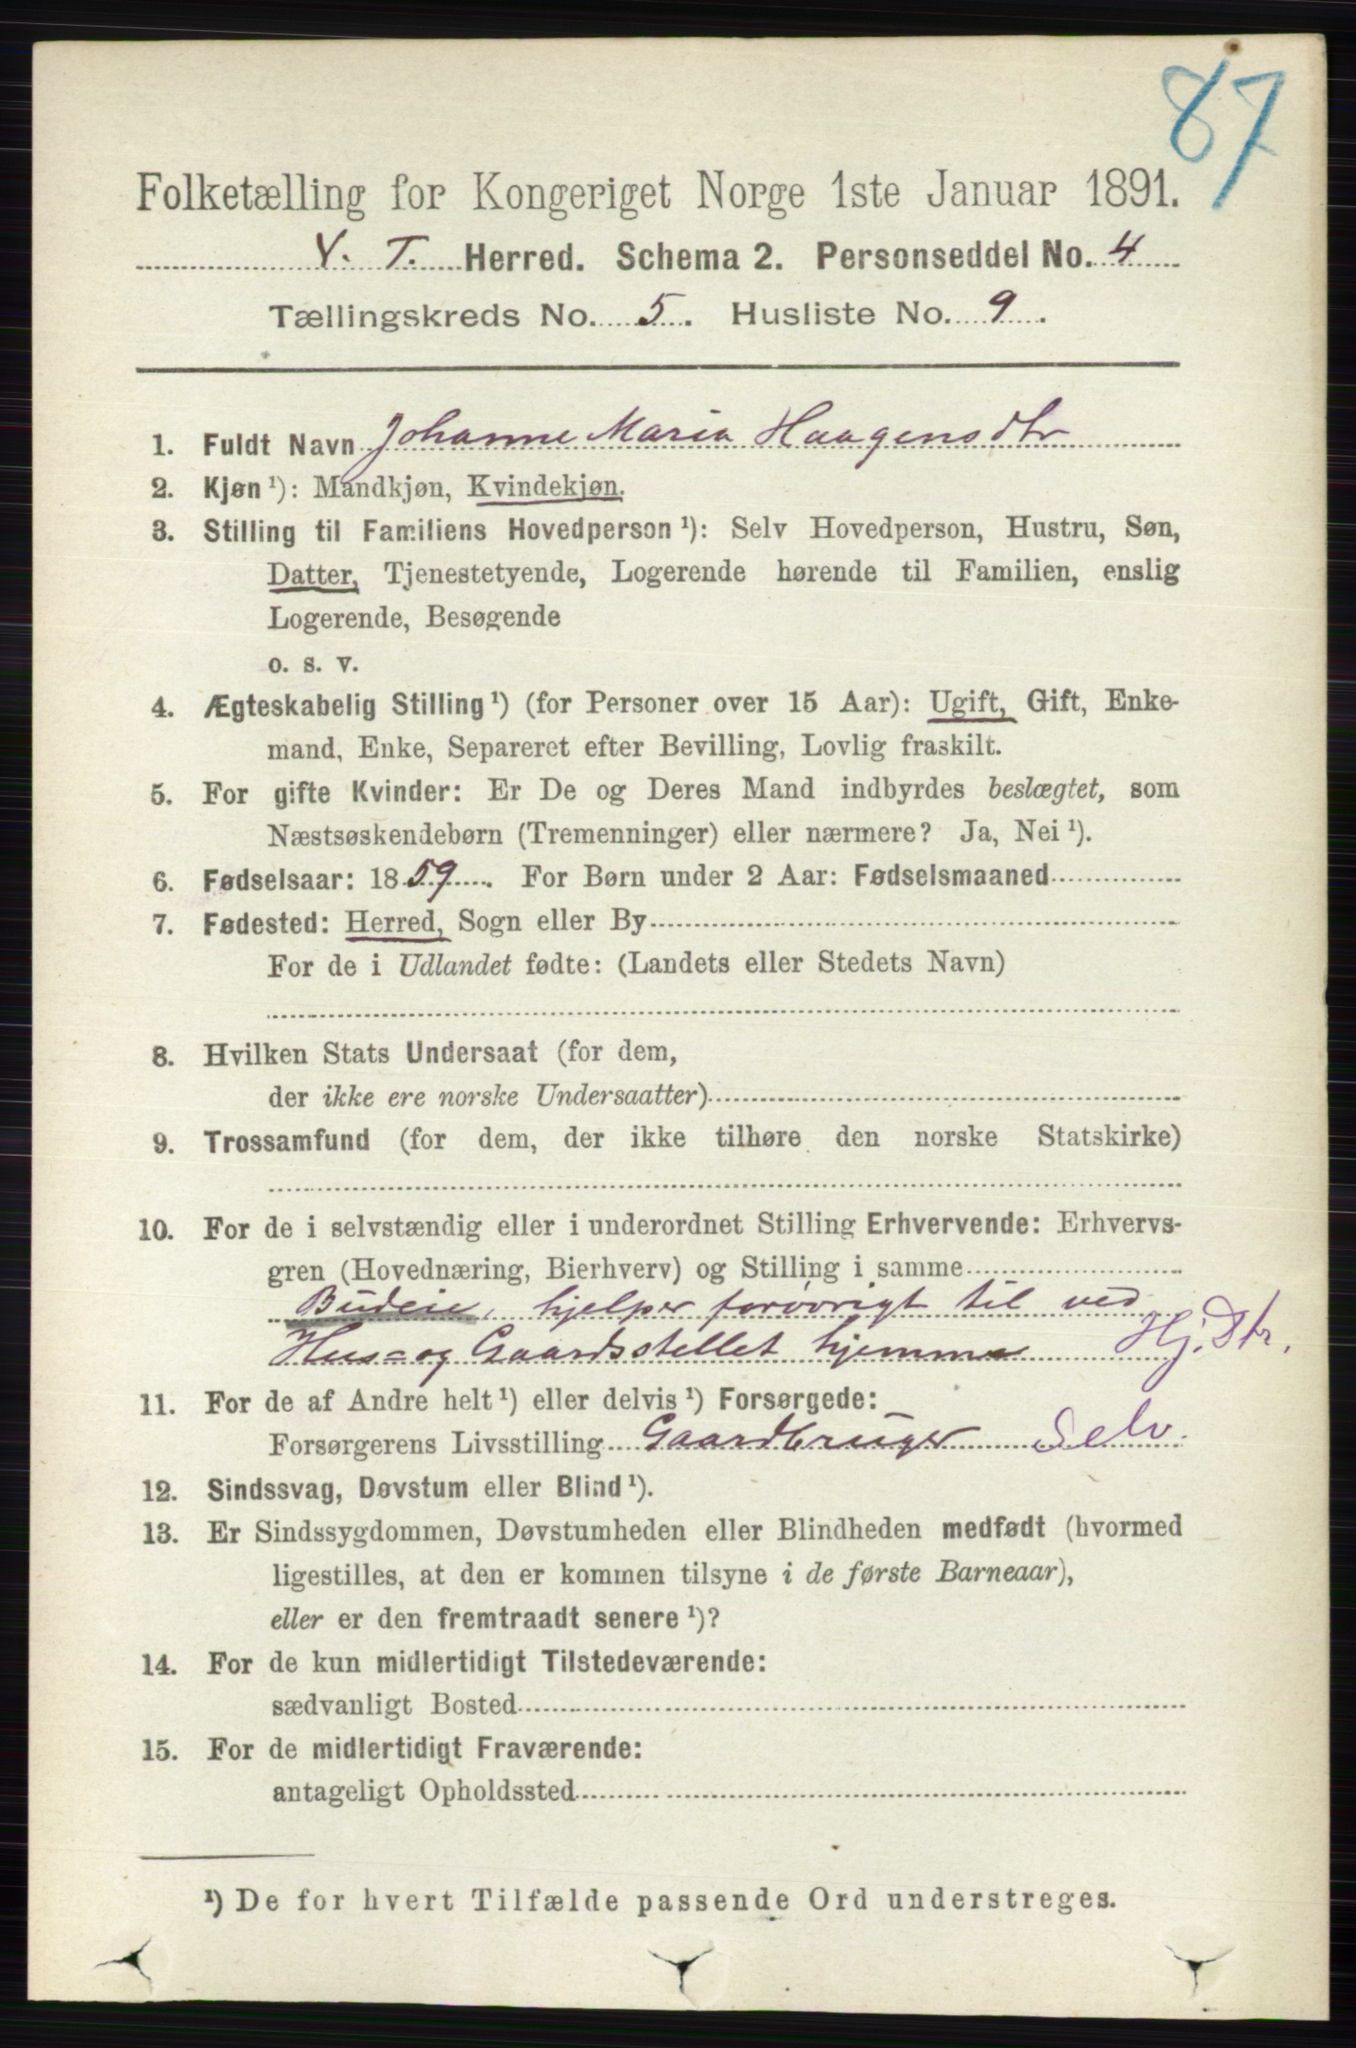 87
Folketælling for Kongeriget Norge 1ste Januar 1891.
V. T. Herred. Schema 2. Personseddel No. 4
Tællingskreds No. 5. Husliste No. 9.
1. Fuldt Navn Johanne Maria Haagensdtr
2. Kjøn ¹): Mandkjøn, Kvindekjøn.
3. Stilling til Familiens Hovedperson ¹): Selv Hovedperson, Hustru, Søn,
Datter, Tjenestetyende, Logerende hørende til Familien, enslig
Logerende, Besøgende
o. s. v.
4. Ægteskabelig Stilling ¹) (for Personer over 15 Aar): Ugift, Gift, Enke-
mand, Enke, Separeret efter Bevilling, Lovlig fraskilt.
5. For gifte Kvinder: Er De og Deres Mand indbyrdes beslægtet, som
Næstsøskendebørn (Tremenninger) eller nærmere? Ja, Nei ¹).
6. Fødselsaar: 1859. For Børn under 2 Aar: Fødselsmaaned
7. Fødested: Herred, Sogn eller By
For de i Udlandet fødte: (Landets eller Stedets Navn)
8. Hvilken Stats Undersaat (for dem,
der ikke ere norske Undersaatter)
9. Trossamfund (for dem, der ikke tilhøre den norske Statskirke)
10. For de i selvstændig eller i underordnet Stilling Erhvervende: Erhvervs-
gren (Hovednæring, Bierhverv) og Stilling i samme
Budeie, hjelper forøvrigt til ved
Hus= og Gaardsstellet hjemme Hj. Dtr.
11. For de af Andre helt ¹) eller delvis ¹) Forsørgede:
Forsørgerens Livsstilling Gaardbruger Selv.
12. Sindssvag, Døvstum eller Blind ¹).
13. Er Sindssygdommen, Døvstumheden eller Blindheden medfødt (hvormed
ligestilles, at den er kommen tilsyne i de første Barneaar),
eller er den fremtraadt senere ¹)?
14. For de kun midlertidigt Tilstedeværende:
sædvanligt Bosted
15. For de midlertidigt Fraværende:
antageligt Opholdssted
¹) De for hvert Tilfælde passende Ord understreges.